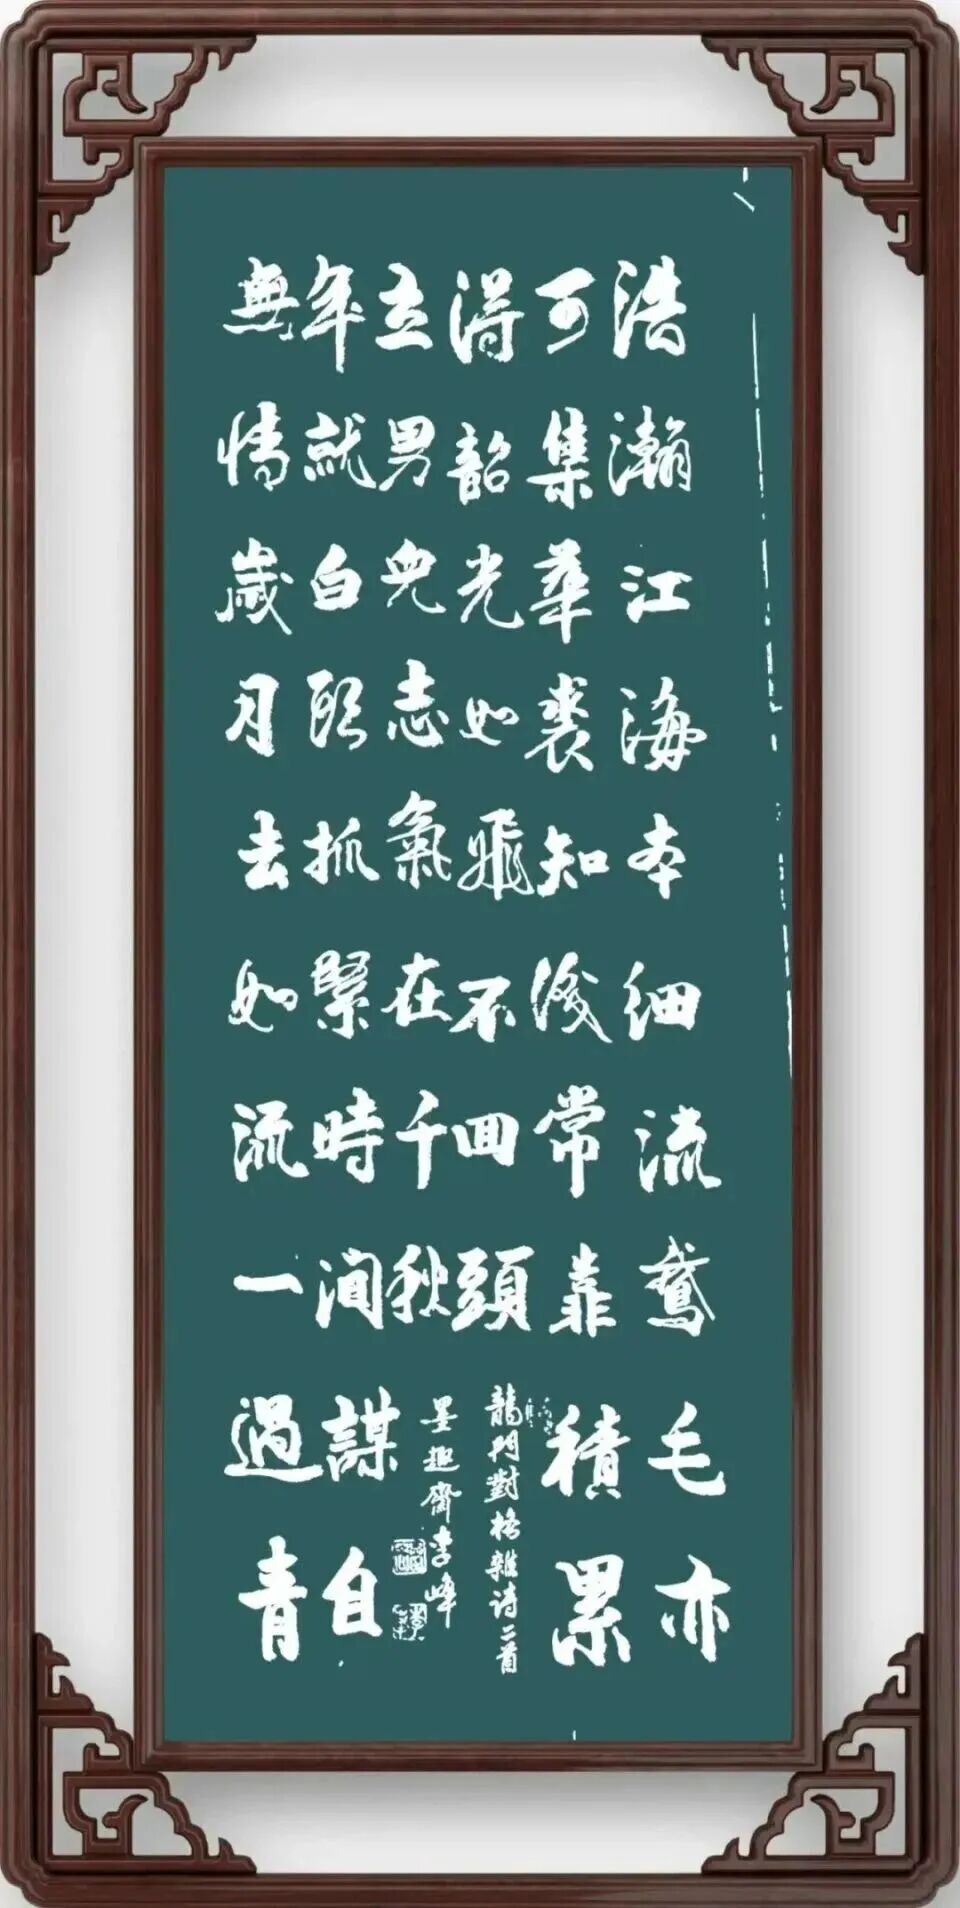 浩瀚江海本細流鵞毛亦
可集華裘知常靠積累
得韶光如飛不囬頭
龍門對格雜诗二首
無情歲月去如流一過青
年就白頭抓緊時間謀自
立男兒志氣在千秋
墨趣齋李峰